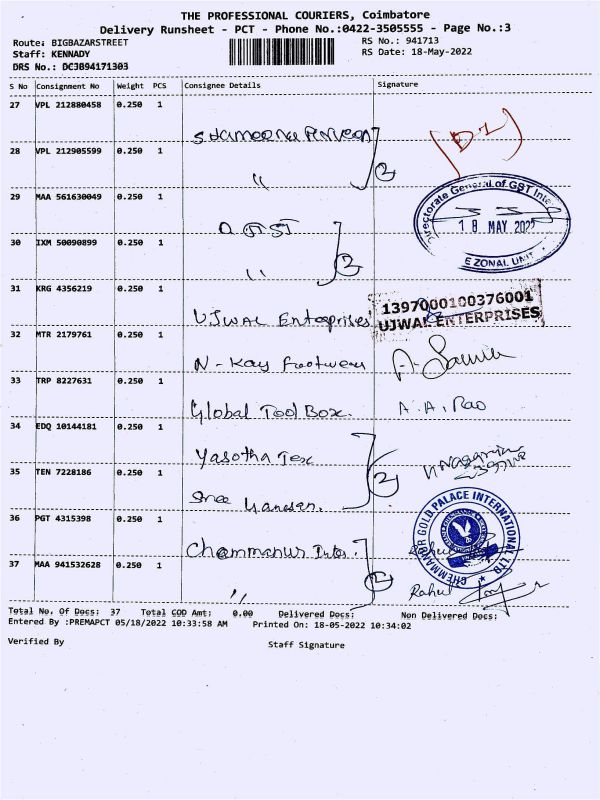 THE PROFESSIONAL COURIERS, Coimbatore
Delivery Runsheet - PCT - Phone No.:0422-3505555 - Page No.:3
Route: BIGBAZARSTREET RS No.: 941713
Staff: KENNADY RS Date: 18-May-2022
DRS No.: DCJB94171303
S No Consignment No Weight PCS Consignee Details Signature
27 VPL 212880458 0.250 1
28 VPL 212905599 0.250 1 " 2
29 MAA 561630049 0.250 1 D GST Directorate General of GST
30 IXM 50090899 0.250 1 " 2 18 MAY 2022
E ZONAL UNIT
31 KRG 4356219 0.250 1 UJWAL Enterprises 1397000100376001
UJWAL ENTERPRISES
32 MTR 2179761 0.250 1 N-Kay Footwear
33 TRP 8227631 0.250 1 Global Tool Box. A.A. Rao
34 EDQ 10144181 0.250 1 Yasotha Tex 2
35 TEN 7228186 0.250 1 Sree
36 PGT 4315398 0.250 1 Chammanur Inter. 2 CHEMMANUR GOLD PALACE INTERNATIONAL LTD
37 MAA 941532628 0.250 1 " Rahul
Total No. Of Docs: 37 Total COD Amt: 0.00 Delivered Docs: Non Delivered Docs:
Entered By :PREMAPCT 05/18/2022 10:33:58 AM Printed On: 18-05-2022 10:34:02
Verified By Staff Signature